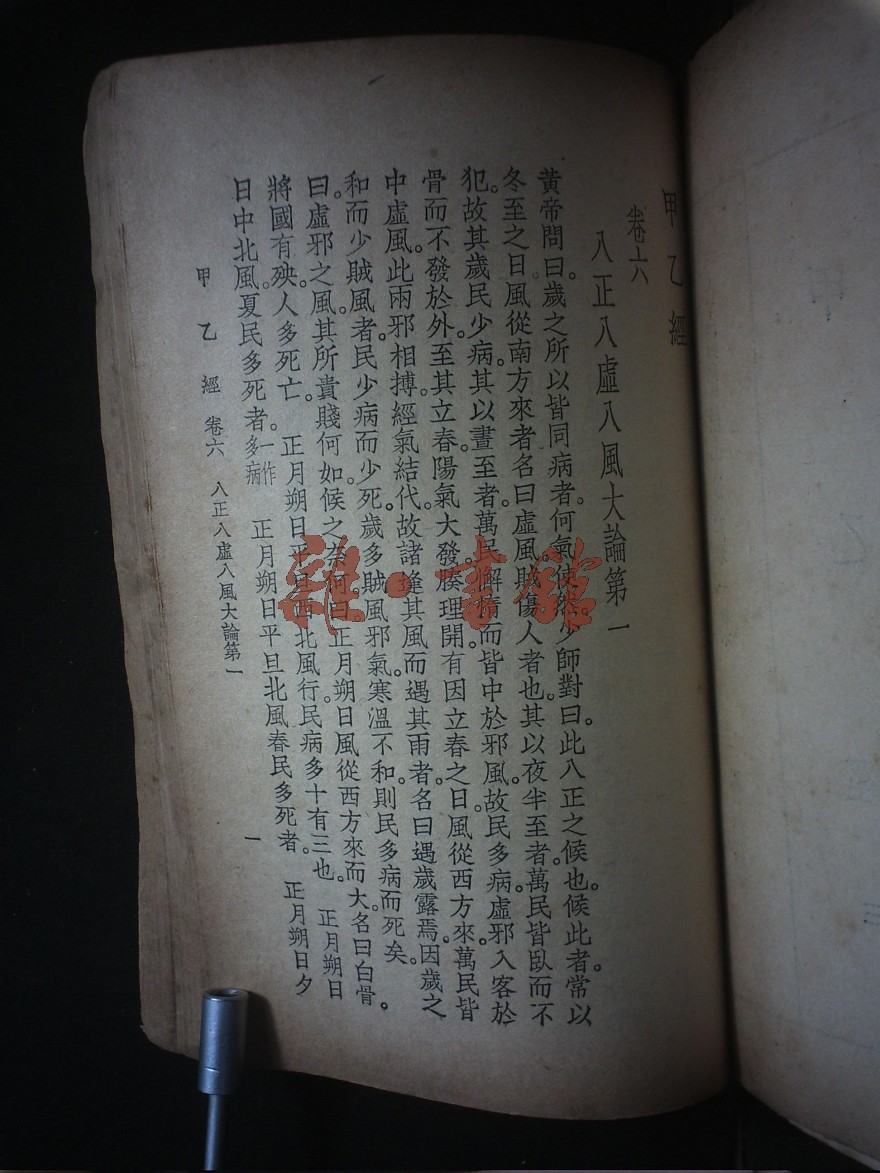 甲乙經
卷六
八正八虛八風大論第一
黃帝問曰。歲之所以皆同病者。何氣使然。少師對曰。此八正之候也。候此者。常以
冬至之日。風從南方來者。名曰虛風。賊傷人者也。其以夜半至者。萬民皆臥而不
犯。故其歲民少病。其以晝至者。萬民懈惰而皆中於邪風。故民多病。虛邪入客於
骨而不發於外。至其立春陽氣大發。腠理開。有因立春之日。風從西方來。萬民皆
中虛風。此兩邪相搏。經氣結代。故諸逢其風而遇其雨者。名曰遇歲露焉。因歲之
和而少賊風者。民少病而少死。歲多賊風邪氣。寒溫不和。則民多病而死矣。
曰。虛邪之風。其所貴賤何如。候之奈何。曰。正月朔日。風從西方來而大。名曰白骨。
將國有殃。人多死亡。正月朔日。平旦西北風行。民病多。十有三也。正月朔日
日中北風。夏民多死者。一作多病 正月朔日平旦北風。春民多死者。正月朔日夕
甲乙經 卷六 八正八虛八風大論第一 一
雜·書館